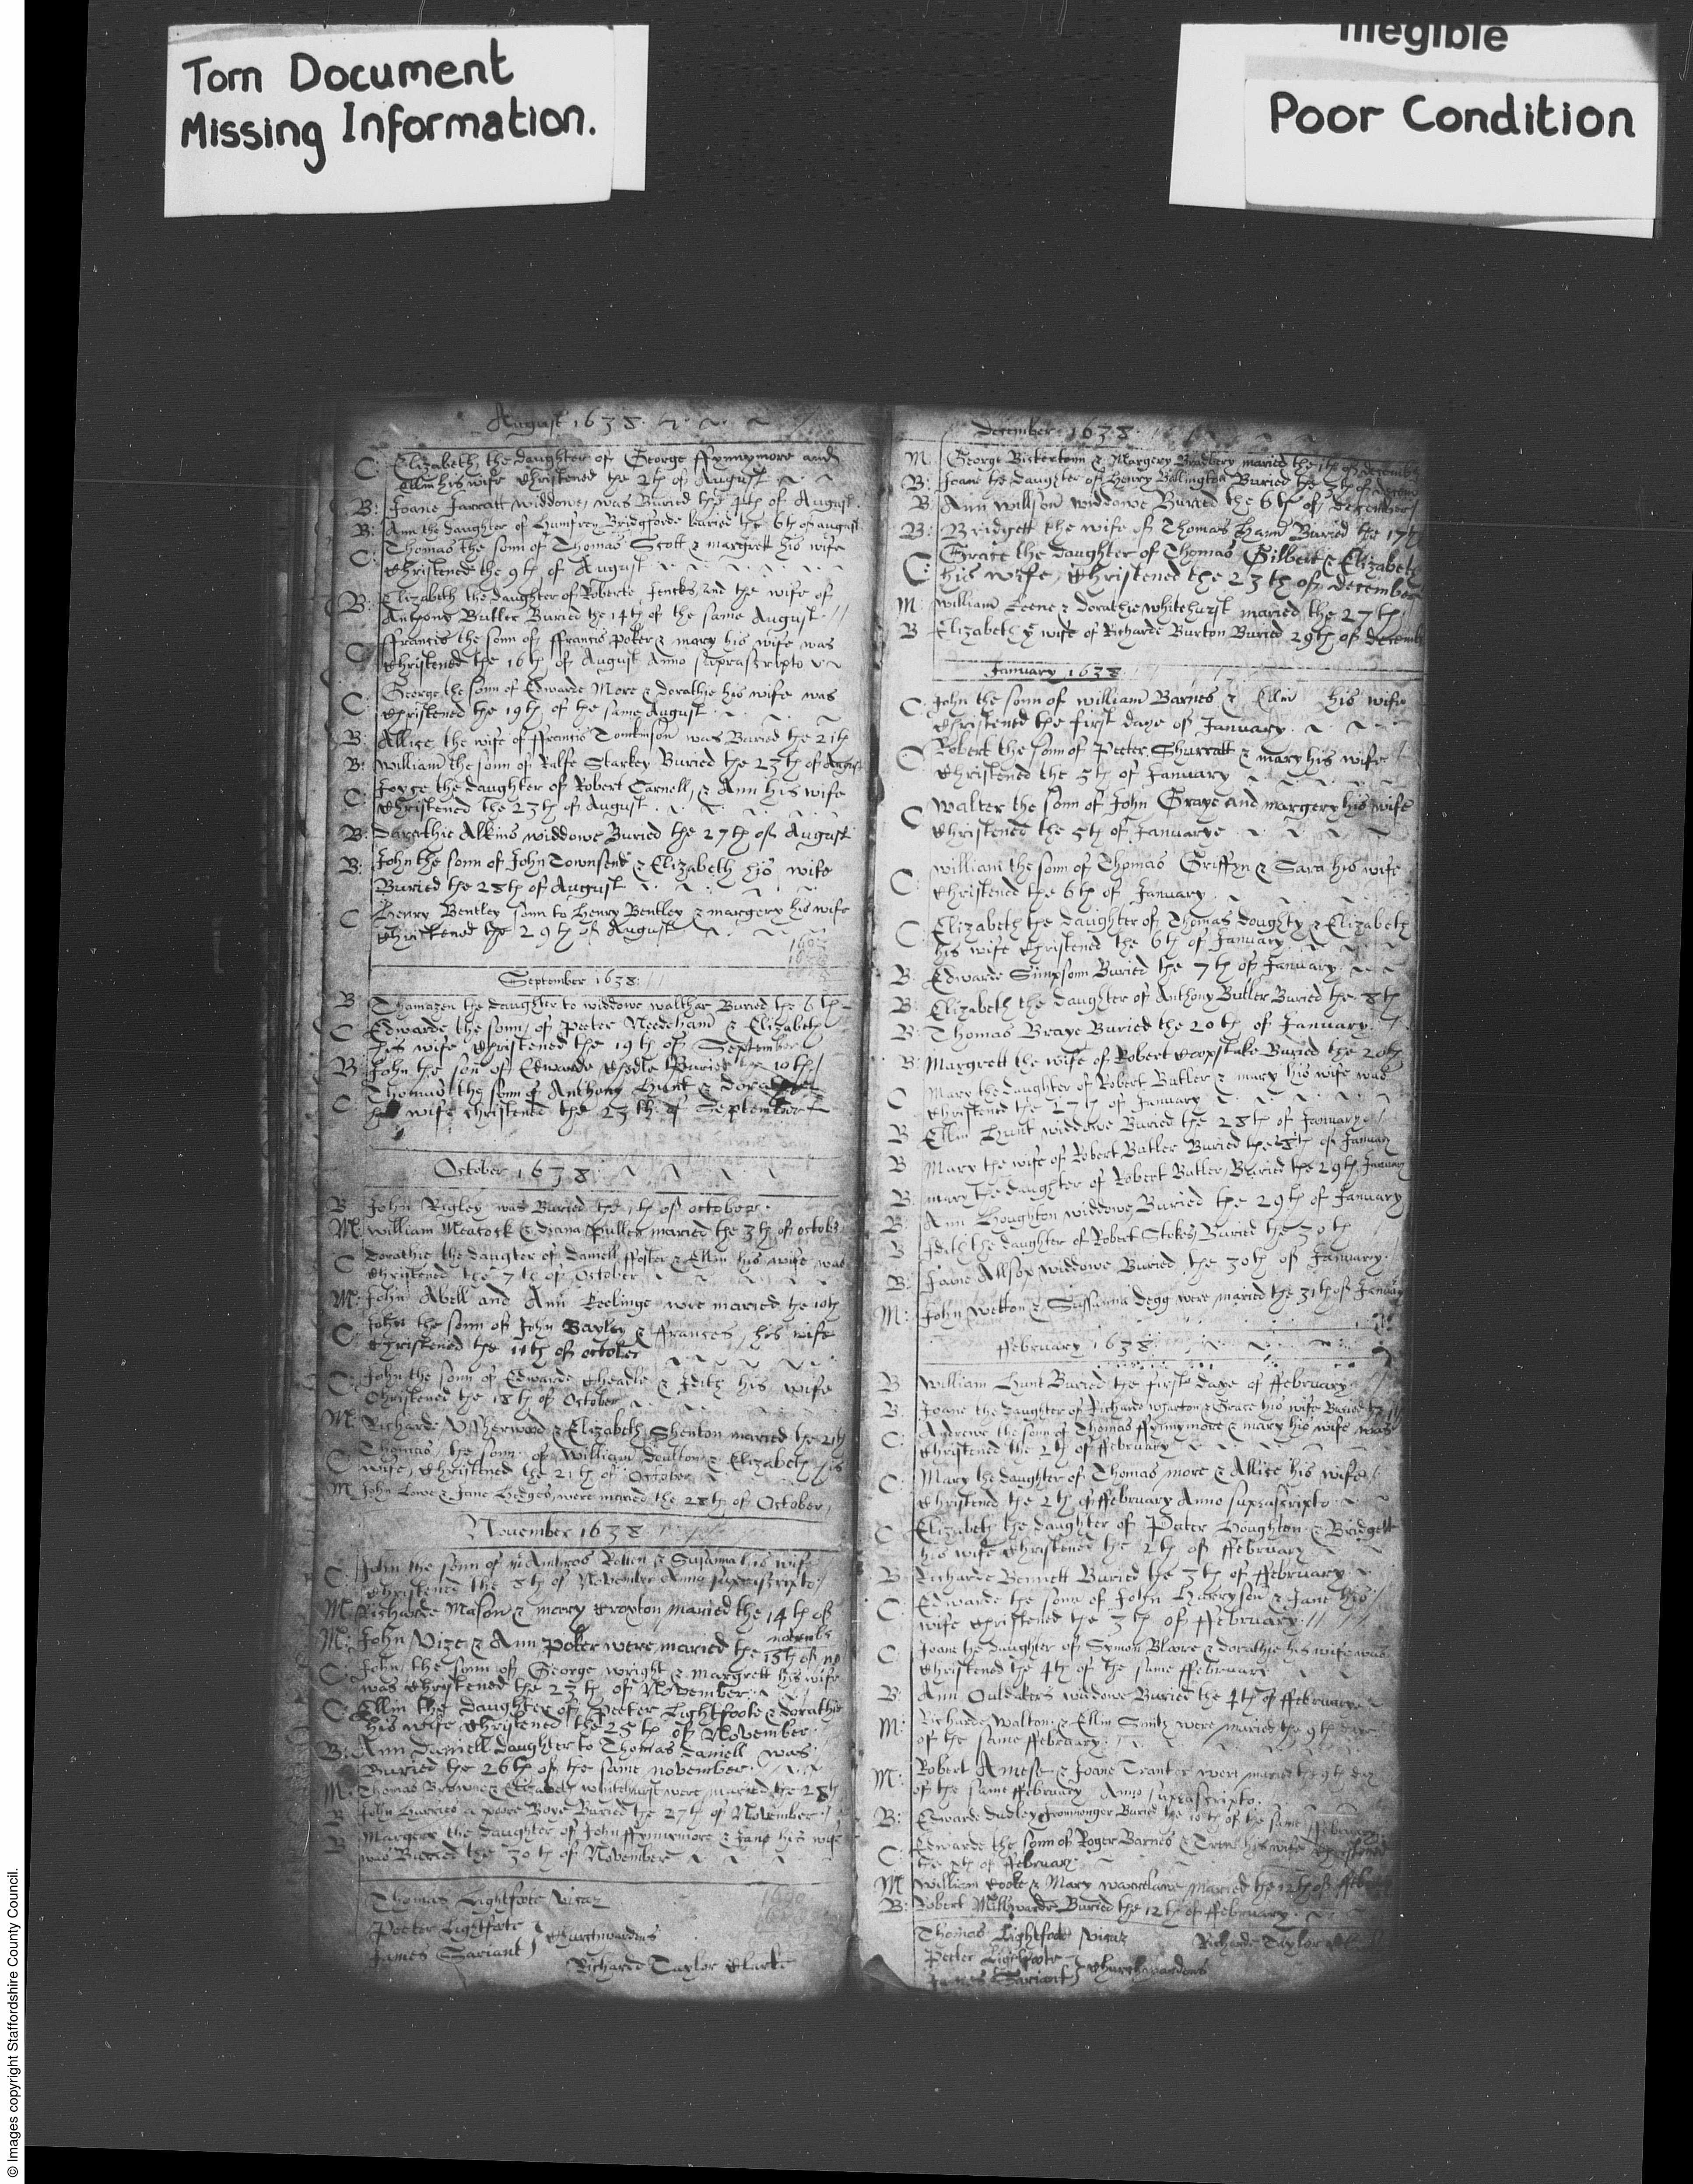 Torn Document
Missing Information.
Illegible
Poor Condition
August 1638
C: Elizabeth the daughter of George ffynnymore and
Ellin his wife Christened the 2th of August
B: Joane Jarratt widdowe was Buried the 4th of August
B: Ann the daughter of Humfrey Bridgforde buried the 6th of august
C: Thomas the sonn of Thomas Scott & margrett his wife
Christened the 9th of August
B: Elizabeth the daughter of Roberte Jencks and the wife of
Anthony Butler Buried the 14th of the same August
C ffrancis the sonn of ffrancis Poker & mary his wife was
Christened the 16th of August Anno suprascripto
C: George the sonn of Edwarde More & dorathie his wife was
Christened the 19th of the same August
B: Allice the wife of ffrancis Tomkinson was Buried the 21th
B: William the sonn of Ralfe Starkey Buried the 23th of August
C: Joyce the daughter of Robert Carnell & Ann his wife
Christened the 23th of August
B: Darathie Alkins widdowe Buried the 27th of August
B: John the sonn of John Townsend & Elizabeth his wife
Buried the 28th of August
C Henry Bentley sonn to Henry Bentley & margery his wife
Christened the 29th of August
September 1638
B Thamazen the daughter to widdowe walthar Buried the 6th
C Edwarde the sonn of Peeter Needeham & Elizabeth
his wife Christened the 19th of September
B John the son of Edwarde Buried the 10th
C: Thomas the sonn of Anthony Hunt &
his wife christened the 23th of September
October 1638
B John Rigley was Buried the 1th of october
M: William Meacock & diana Puller maried the 3th of october
C dorathie the daugter of daniell ffoster & Ellin his wife was
Christened the 7th of October
M: John Abell and Ann Keelinge were maried the 10th
C: John the sonn of John Bayley & ffrances his wife
Christened the 11th of october
C: John the sonn of Edwarde Cheadle & Edith his wife
Christened the 18th of October
M: Richarde & Elizabeth Shenton married the 21th
C Thomas the sonn of William Doulton & Elizabeth his
wife Christened the 21th of October
M John Lowe & Jane Hedges were maried the 28th of October
November 1638
C: John the sonn of mr Ambros & Susanna his wife
Christened the 8th of November Anno suprascripto
M: Richarde Mason & mary Croxton maried the 14th of
novembr
M: John Vize & Ann Poker were maried the 15th of no
C: John the sonn of George wright & margrett his wife
was Christened the 23th of November
C: Ellin the daughter of Peeter Lightfoote & dorathie
his wife Christened the 25th of November
B: Ann daniell daughter to Thomas daniell was
Buried the 26th of the same november
M: Thomas Browne & Elizabeth whitehurst were maried the 28th
B John a poore Boye Buried the 27th of November
B Margery the daughter of John ffynnymore & Jane his wife
was Buried the 30th of November
Thomas Lightfoote Vicar
Peeter Lightfoote
James Sariant Churchwardens
Richard Taylor Clarke
December 1638
M George Bickerton & Margery Bradbery maried the 1th of december
B: Joane the daughter of Henry Bellington Buried the 5th of decem
B Ann willson widdowe Buried the 6th of december
B: Bridgett the wife of Thomas Ham Buried the 17th
C: Grace the daughter of Thomas Gilbert & Elizabeth
his wife Christened the 23th of december
M: William Keene & dorathie whitehurst maried the 27th
B Elizabeth ye wife of Richarde Burton Buried 29th of decembr
January 1638
C: John the sonn of william Barnes & Ellin his wife
Christened the first daye of January
C Robert the sonn of Peeter Shurratt & mary his wife
Christened the 5th of January
C Walter the sonn of John Graye and margery his wife
Christened the 5th of Januarye
C: William the sonn of Thomas Griffyn & Sara his wife
Christened the 6th of January
C Elizabeth the daughter of Thomas doughty & Elizabeth
his wife Christened the 6th of January
B: Edwarde Simpsonn Buried the 7th of January
B: Elizabeth the daughter of Anthony Butler Buried the 8th
B: Thomas Braye Buried the 20th of January
B: Margrett the wife of Robert Buried the 20th
C Mary the daughter of Robert Batler & mary his wife was
Christened the 27th of January
B Ellin Hunt widdowe Buried the 28th of January
B Mary the wife of Robert Batler Buried the 28th of January
B: mary the daughter of Robert Batler Buried the 29th January
B: Ann Houghton widdowe Buried the 29th of January
B Edith the daughter of Robert Stokes Buried the 30th
B: Jane Allsop widdowe Buried the 30th of January
M: John Wetton & Sussanna degg were maried the 31th of January
ffebruary 1638
B William Hunt Buried the firste daye of ffebruary
B Joane the daughter of Richarde wharton & Grace his wife Buried
C: Andrewe the sonn of Thomas ffynnymore & mary his wife was
Christened the 2th of ffebruary
C: Mary the daughter of Thomas more & Allice his wife
Christened the 2th of ffebruary Anno suprascripto
C Elizabeth the daughter of Peeter Houghton & Bridgett
his wife Christened the 2th of ffebruary
B Richarde Bennett Buried the 3th of ffebruary
C Edwarde the sonn of John Harryson & Jane his
wife Christened the 3th of ffebruary
C Joane the daughter of Symon Bloore & dorathie his wife was
Christened the 4th of the same ffebruary
B Ann Ouldakers widdowe Buried the 4th of ffebruary
M: Richarde Walton & Ellin Smith were maried the 9th daye
of the same ffebruary
M: Robert & Joane Tranter were maried the 9th day
of the same ffebruary Anno suprascripto
B: Edwarde dudley Ironmonger Buried the 10th of the same ffebruary
C: Edwarde the sonn of Roger Barnes & his wife Christened
the of ffebruary
M William Cooke & Mary maried the 12th of ffebr
B: Robert Millwarde Buried the 12th of ffebruary
Thomas Lightfoote Vicar
Richarde Taylor
Peeter Lightfoote
James Sariant Churchwardens
© Images copyright Staffordshire County Council.